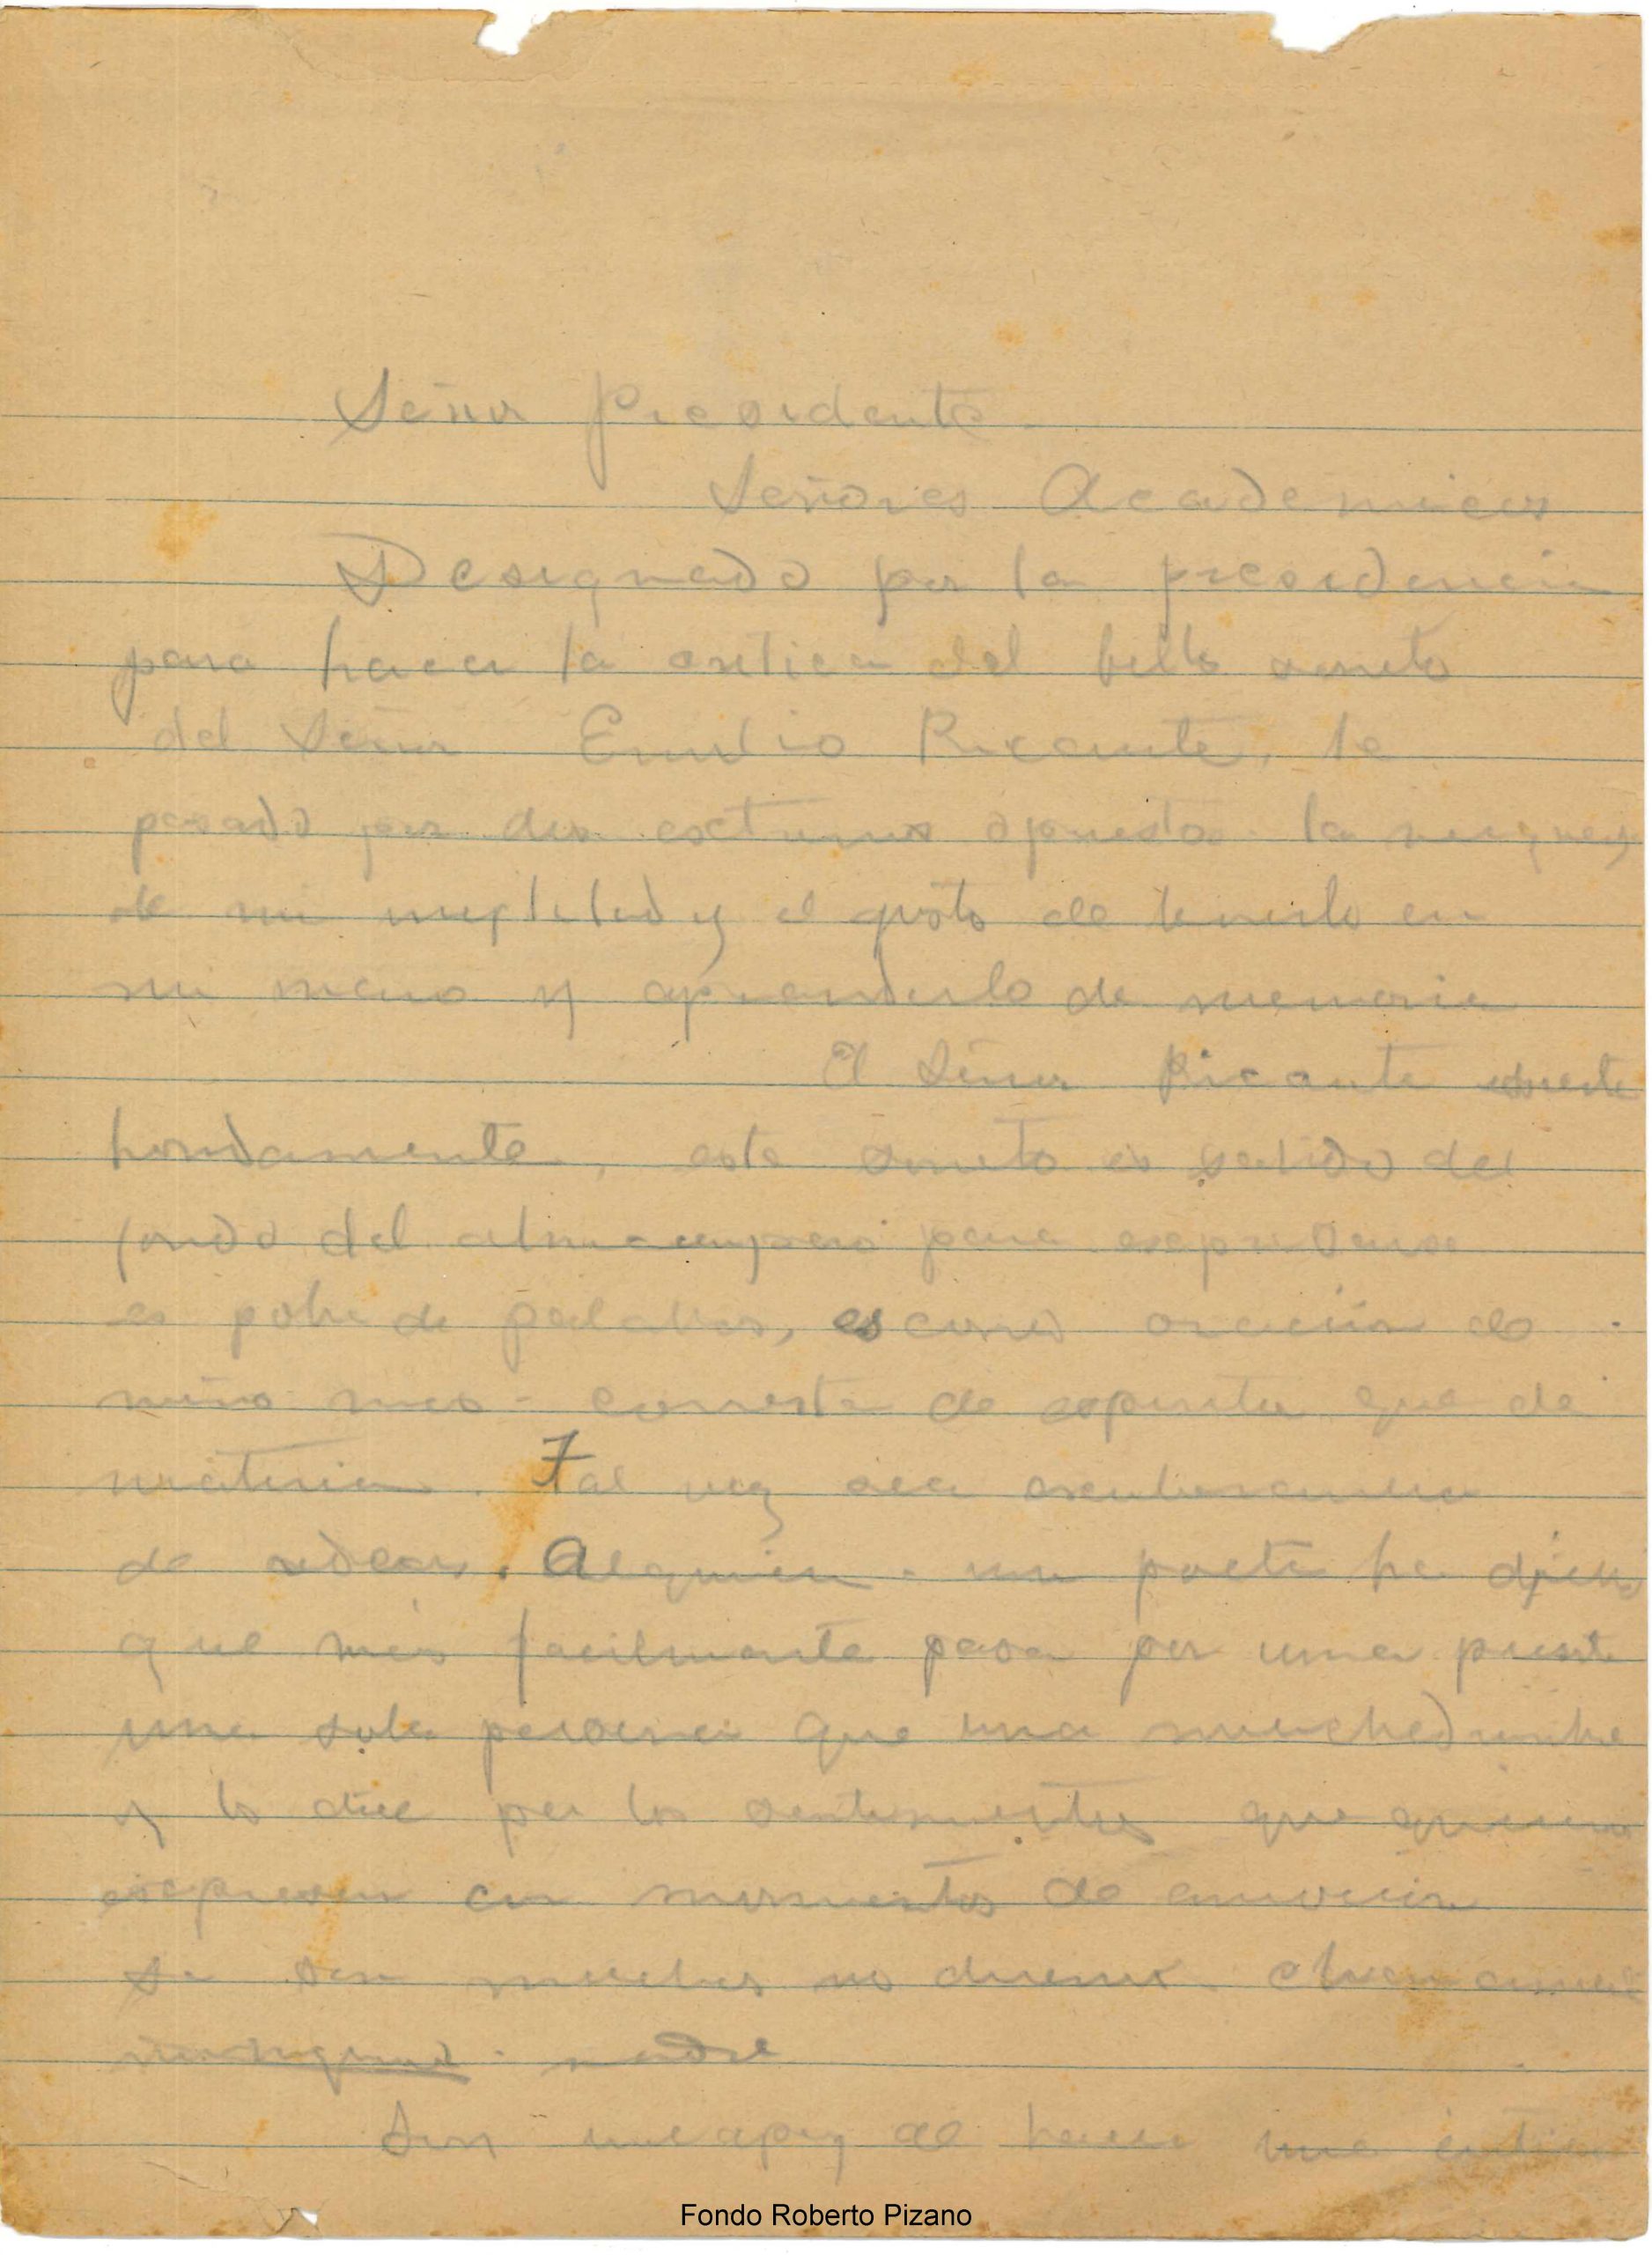 Señor Presidente.
Señores Academicos
Designado por la presidencia
para hacer la critica del bello soneto
del Señor Emilio Ricaurte, he
pasado por dos extremos opuestos la
de mi y el gusto de tenerlo en
mi mano y aprenderlo de memoria
El Señor Ricaurte siente
hondamente, este soneto es salido del
fondo del alma pero para
es pobre de palabras, es como oración de
niño mas de espiritu que de
materia. Tal vez sea
de ideas. Alguien - un poeta ha dicho
que más facilmente pasa por una puerta
una sola persona que una muchedumbre
y lo dice por los sentimientos que quieren
expresar en momentos de emoción
si son muchos no
ninguno. nadie
Soy incapaz de hacer una critica
Fondo Roberto Pizano